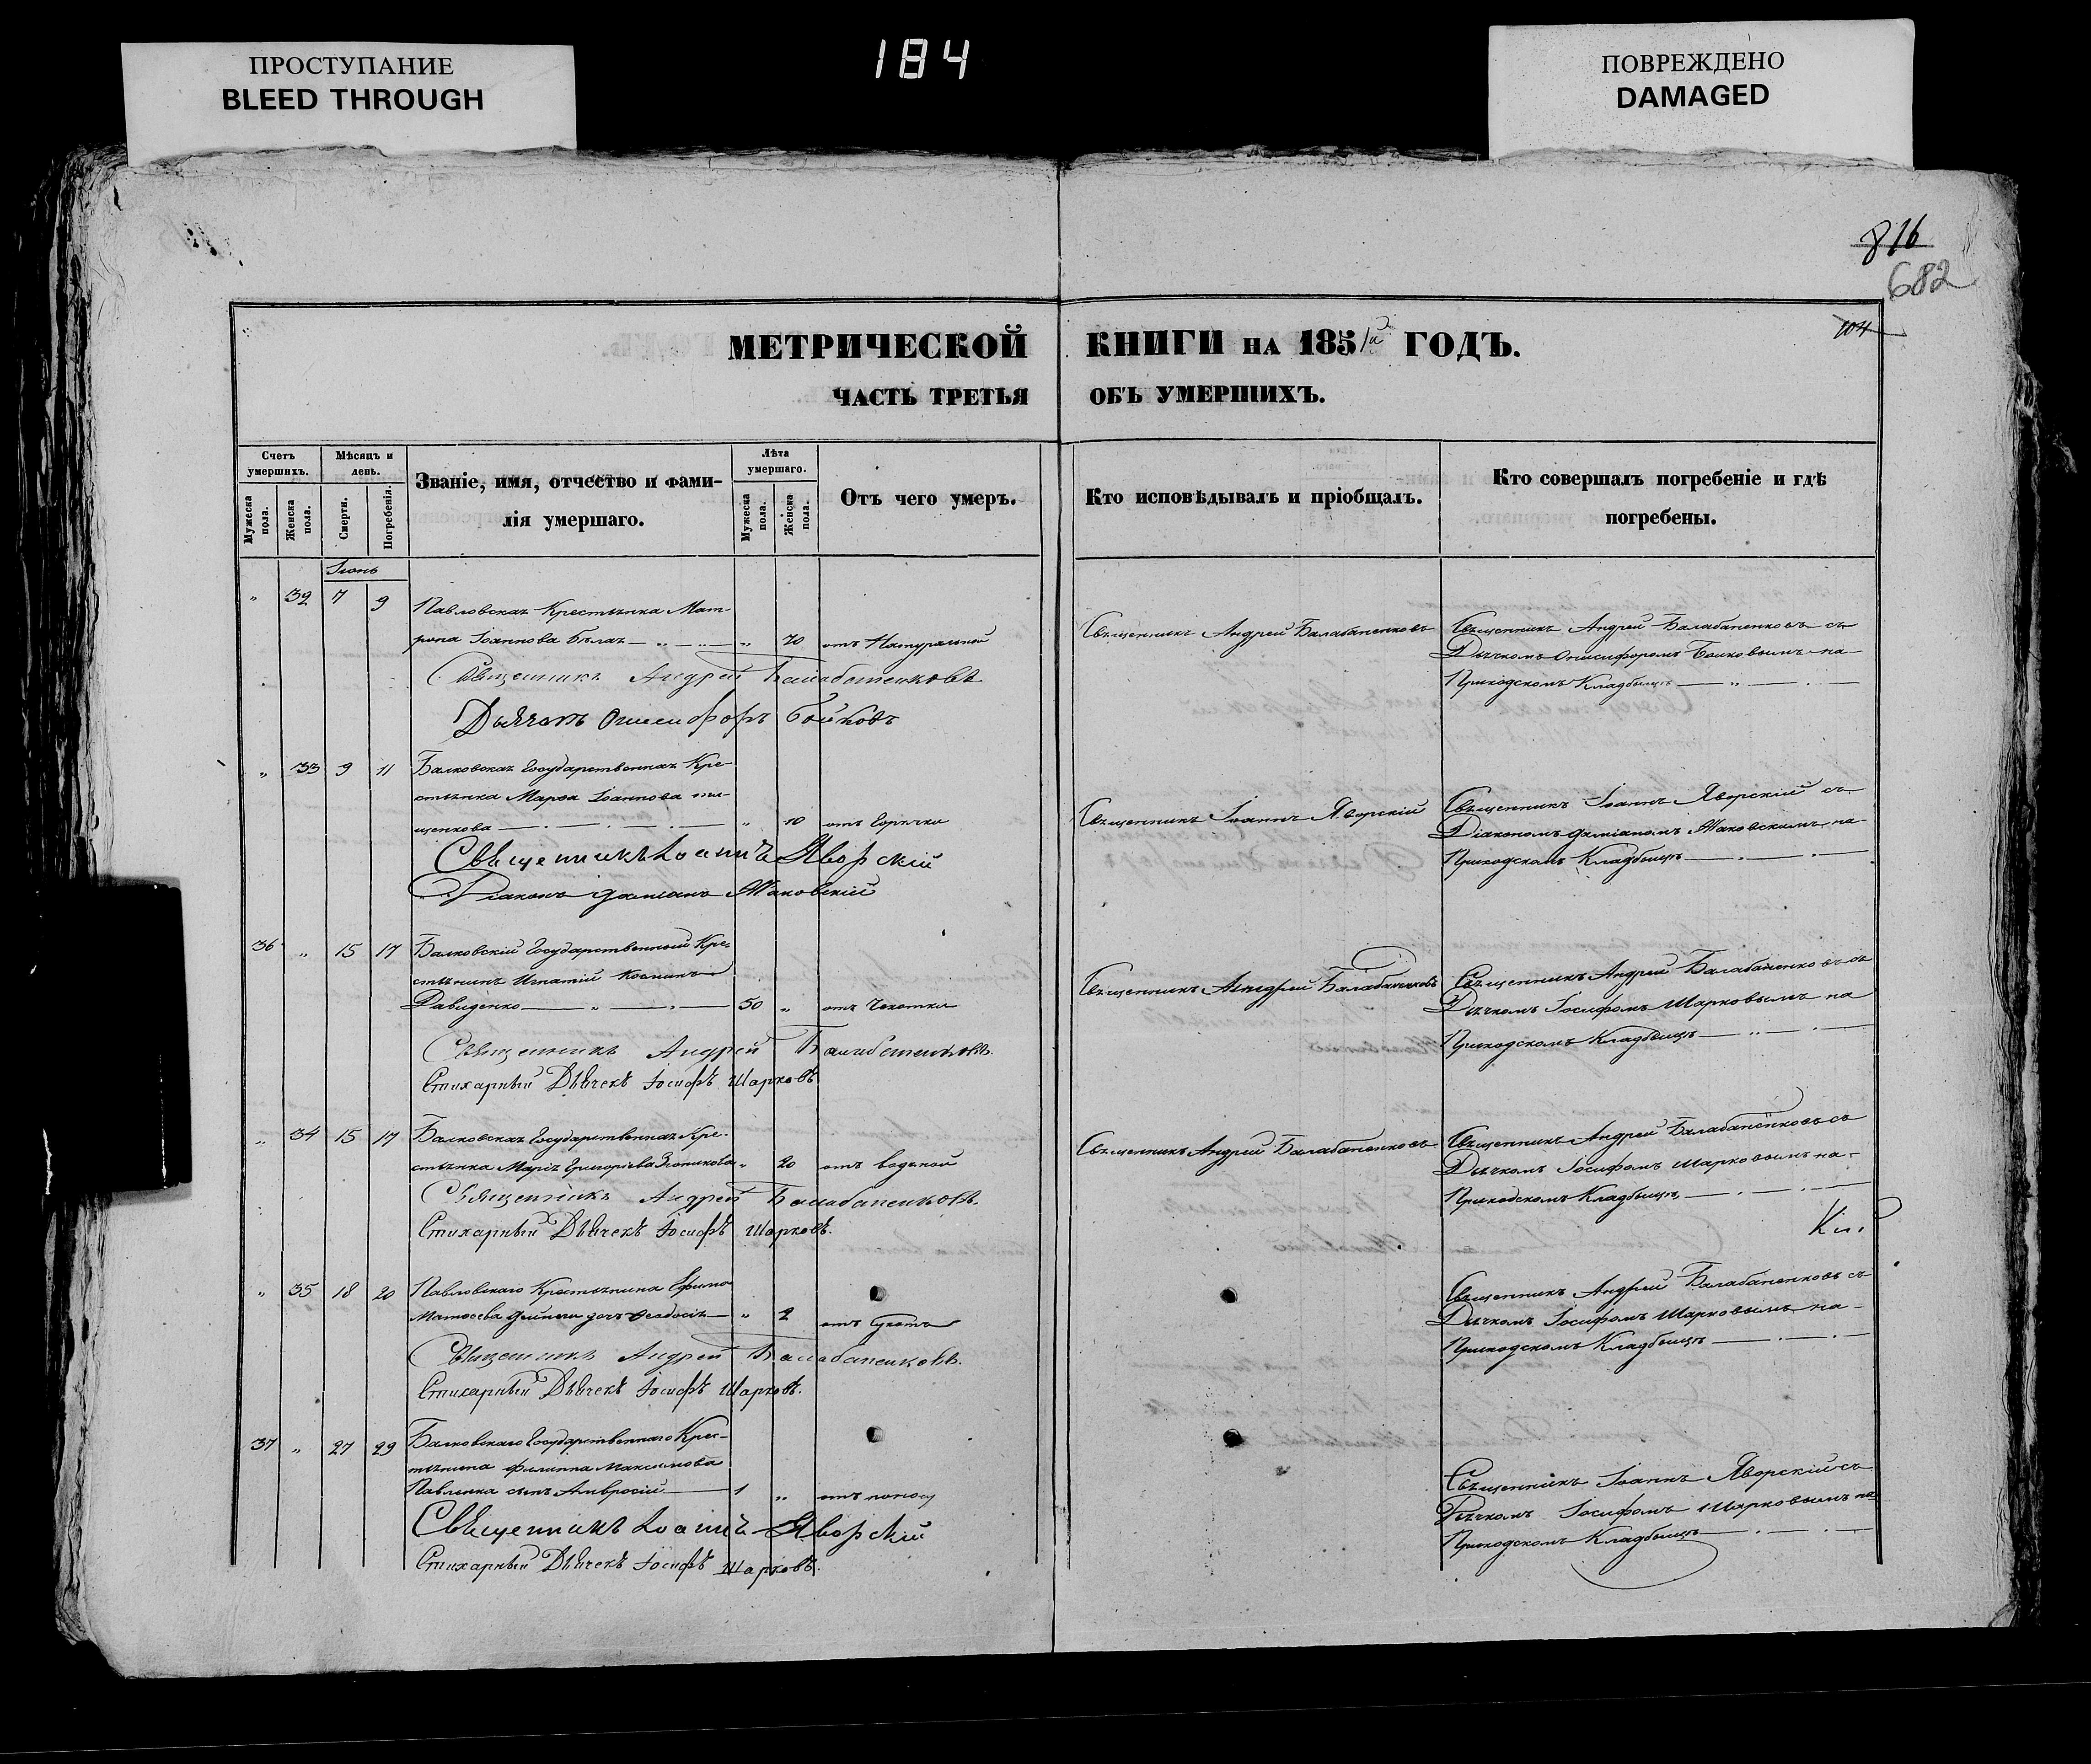 ПРОСТУПАНИЕ
BLEED THROUGH
184
ПОВРЕЖДЕНО
DAMAGED
816
682
104
МЕТРИЧЕСКОЙ КНИГИ НА 1851й ГОДЪ.
ЧАСТЬ ТРЕТЬЯ ОБЪ УМЕРШИХЪ.
Счетъ умершихъ.
Мужеска пола.
Женска пола.
Мѣсяцъ и день.
Смерти.
Погребенія.
Званіе, имя, отчество и фамилія умершаго.
Лѣта умершаго.
Мужеска пола.
Женска пола.
Отъ чего умеръ.
Кто исповѣдывалъ и пріобщалъ.
Кто совершалъ погребеніе и гдѣ погребены.
Іюнь
" 32 7 9 Павловская Крестьянка Мат-
рона Іоаннова Бѣлая " 70 отъ Натуральной
Священникъ Андрей Балабаненковъ
Священникъ Андрей Балабаненковъ съ
Дьячкомъ Онисифоромъ Бойковымъ на
Приходскомъ Кладбищѣ
Священникъ Андрей Балабаненковъ
Дьячокъ Онисифоръ Бойковъ
" 33 9 11 Балковская Государственная Кре-
стьянка Марѳа Іоаннова
щенкова " 10 отъ Горячки
Священникъ Іоаннъ Яворскій
Священникъ Іоаннъ Яворскій съ
Діакономъ Даміаномъ Маковскимъ на
Приходскомъ Кладбищѣ
Священникъ Іоаннъ Яворскій
Діаконъ Даміанъ Маковскій
36 " 15 17 Балковскій Государственный Кре-
стьянинъ Игнатій Косминъ
Давиденко 50 " отъ Чахотки
Священникъ Андрей Балабаненковъ
Священникъ Андрей Балабаненковъ съ
Дьячкомъ Іосифомъ Шарковымъ на
Приходскомъ Кладбищѣ
Священникъ Андрей Балабаненковъ
Стихарный Дьячекъ Іосифъ Шарковъ
" 34 15 17 Балковская Государственная Кре-
стьянка Марія Григоріева " 20 отъ водяной
Священникъ Андрей Балабаненковъ
Священникъ Андрей Балабаненковъ съ
Дьячкомъ Іосифомъ Шарковымъ на
Приходскомъ Кладбищѣ
Священникъ Андрей Балабаненковъ
Стихарный Дьячекъ Іосифъ Шарковъ.
" 35 18 20 Павловскаго Крестьянина Ефима
Матѳеева дочь Ѳеодосія " 2 отъ Сухотъ
Священникъ Андрей Балабаненковъ съ
Дьячкомъ Іосифомъ Шарковымъ на
Приходскомъ Кладбищѣ
Священникъ Андрей Балабаненковъ.
Стихарный Дьячекъ Іосифъ Шарковъ.
37 " 27 29 Балковскаго Государственнаго Крес-
тьянина Филиппа Максимова
Павленка сынъ Амвросій 1 " отъ поносу
Священникъ Іоаннъ Яворскій съ
Дьячкомъ Іосифомъ Шарковымъ на
Приходскомъ Кладбищѣ
Священникъ Іоаннъ Яворскій
Стихарный Дьячекъ Іосифъ Шарковъ.